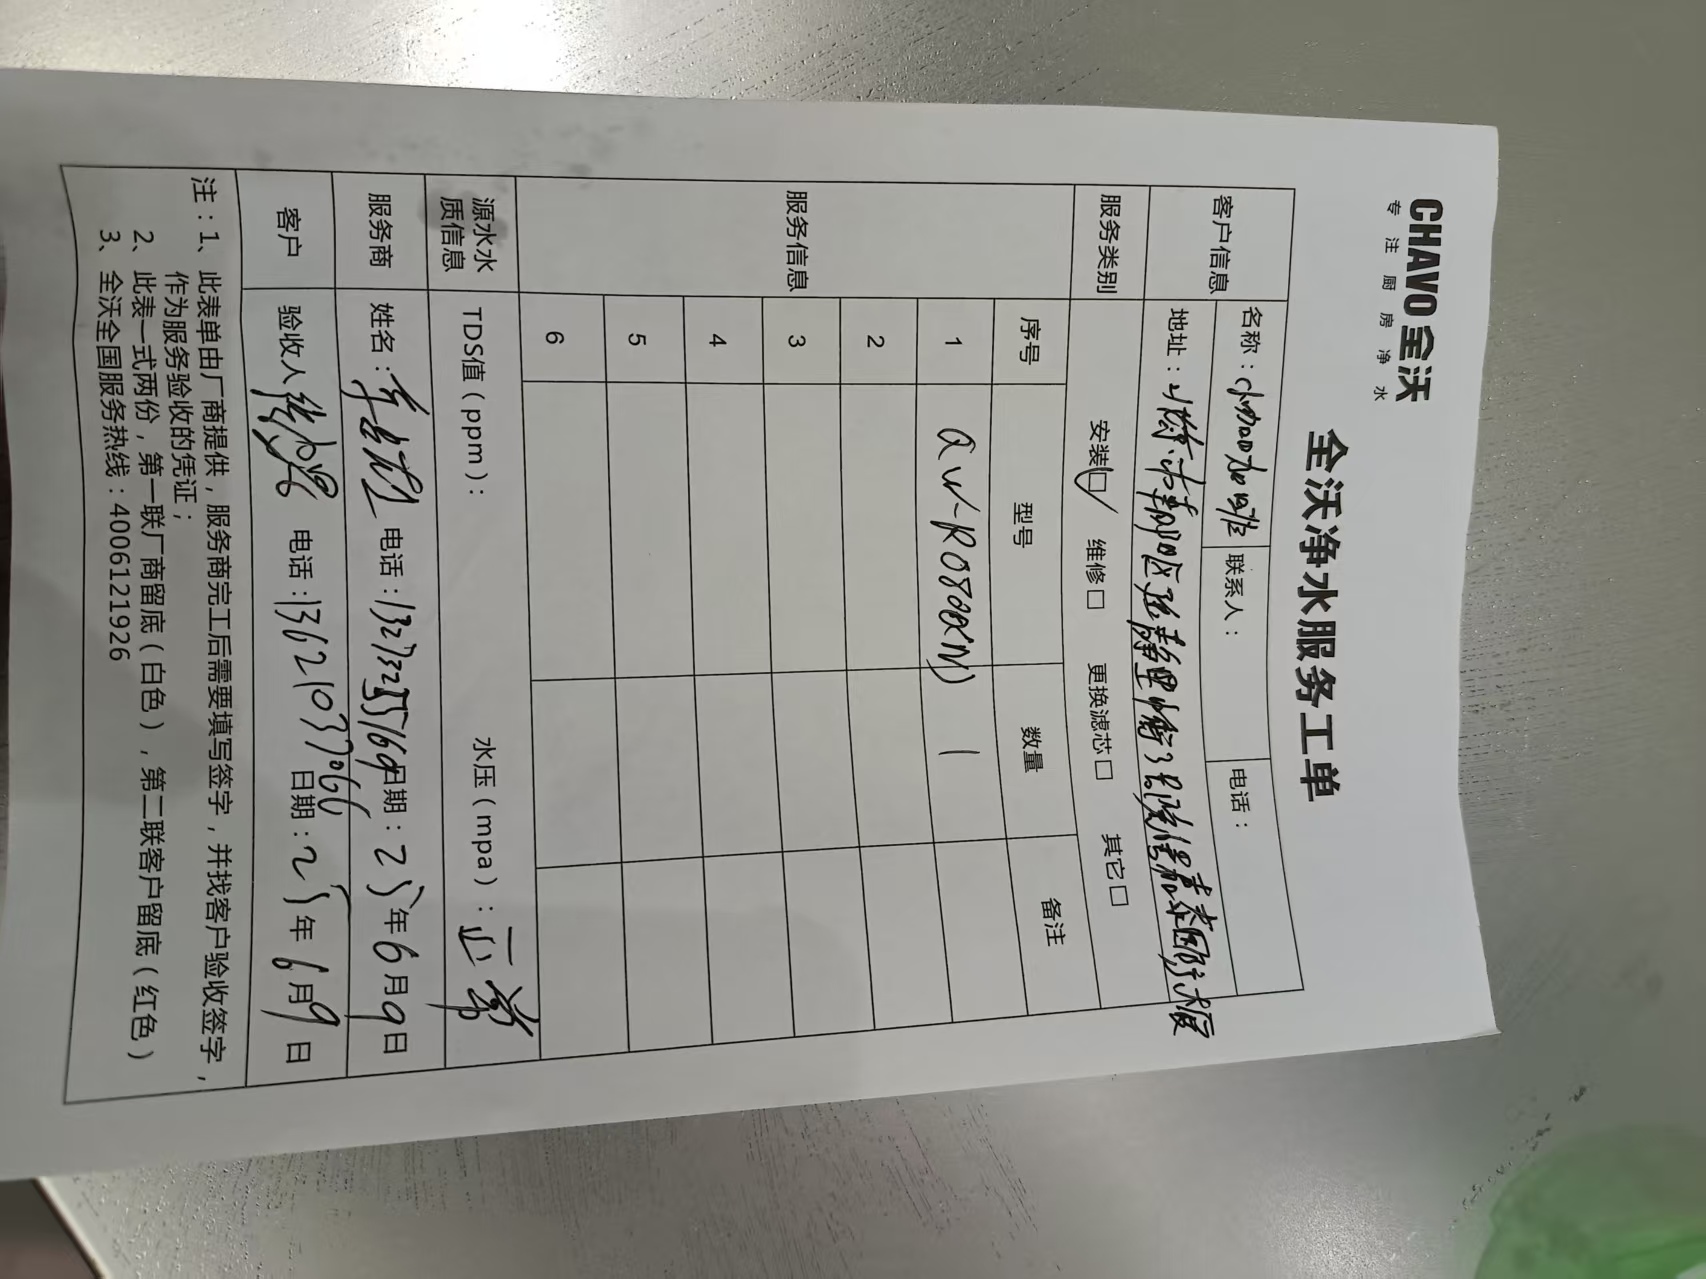 CHAVO全沃
专注厨房净水
全沃净水服务工单
客户信息 名称： 联系人： 电话：
地址：
服务类别 安装☑ 维修□ 更换滤芯□ 其它□
服务信息 序号 型号 数量 备注
1 QW-RO800(N) 1
2
3
4
5
6
源水水质信息 TDS值（ppm）： 水压（mpa）：正常
服务商 姓名： 电话：13273255769 日期：25年6月9日
客户 验收人 电话：13621037066 日期：25年6月9日
注：1、此表单由厂商提供，服务商完工后需要填写签字，并找客户验收签字，
作为服务验收的凭证；
2、此表一式两份，第一联厂商留底（白色），第二联客户留底（红色）
3、全沃全国服务热线：4006121926